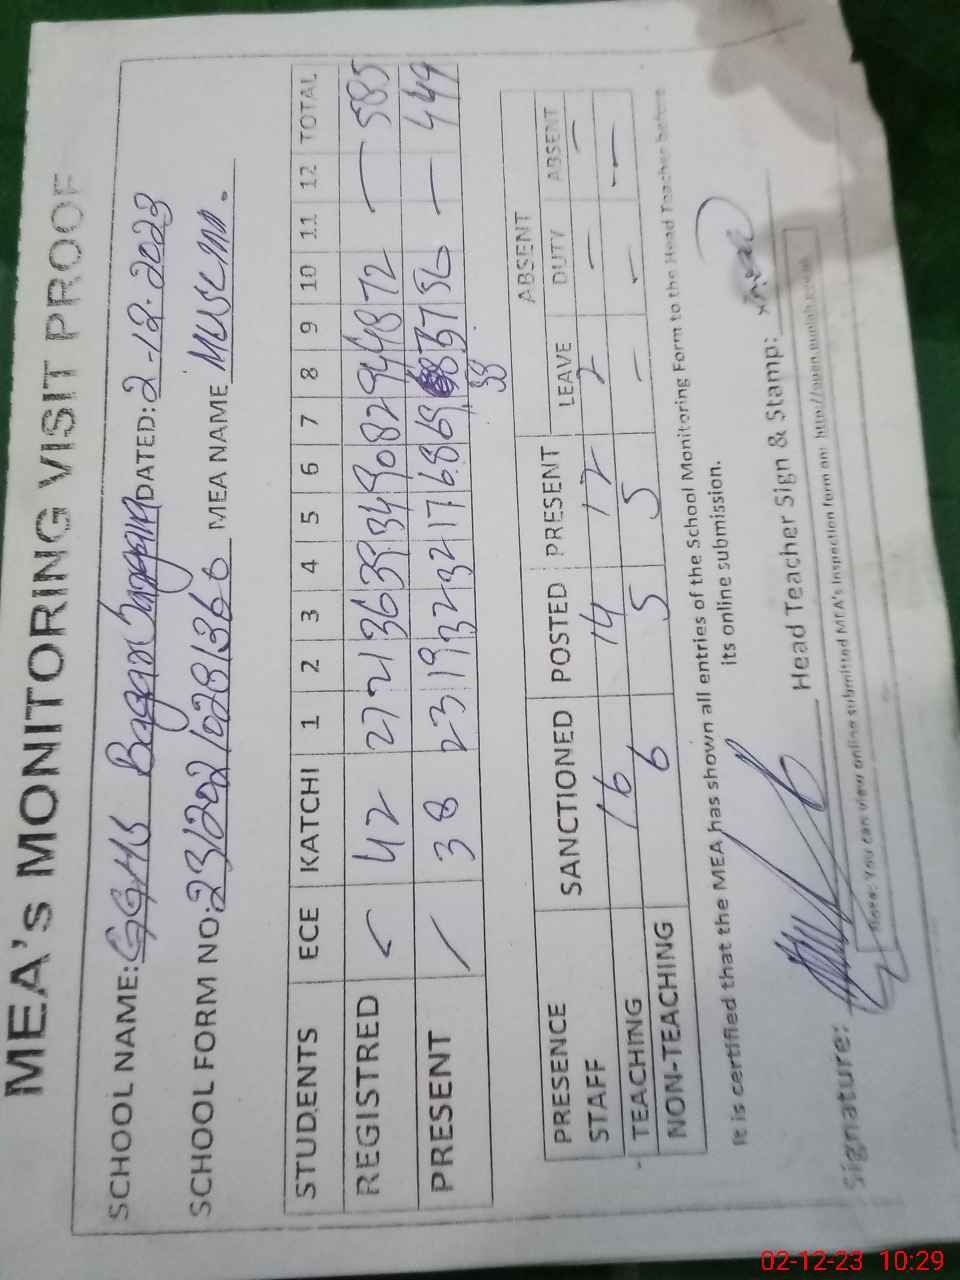 MEA's MONITORING VISIT PROOF
SCHOOL NAME: GGHS DATED: 2-12-2023
SCHOOL FORM NO: MEA NAME
STUDENTS ECE KATCHI 1 2 3 4 5 6 7 8 9 10 11 12 TOTAL
REGISTRED 42 27 21 36 39 34 90 82 94 48 72 — 585
PRESENT 38 23 19 32 32 17 68 69 37 56 — 449
58
PRESENCE SANCTIONED POSTED PRESENT ABSENT
STAFF LEAVE DUTY ABSENT
TEACHING 16 14 12 2 — —
NON-TEACHING 6 5 5 — — —
It is certified that the MEA has shown all entries of the School Monitoring Form to the Head Teacher before
its online submission.
Signature: Head Teacher Sign & Stamp:
Note: You can view online submitted MEA's Inspection form on: http://open.punjab.gov.pk
02-12-23 10:29